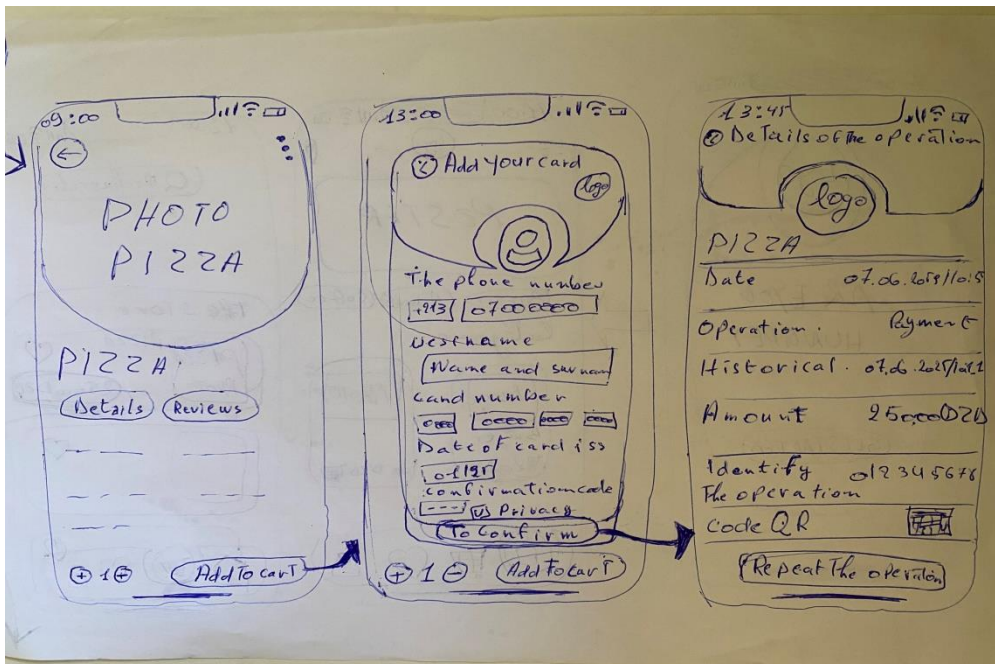 09:00
PHOTO
PIZZA
PIZZA
Details Reviews
1 Add To carT
13:00
Add your card
logo
The phone number
+213 07000000
Name and surnam
card number
0000 0000 0000
Date of card iss
confirmation code
Privacy
To confirm
1 Add To carT
13:45
Details of the operation
logo
PIZZA
Date
Operation. Payment
Historical.
Amount DZD
Identify 012345678
The operation
Code QR
Repeat The operation